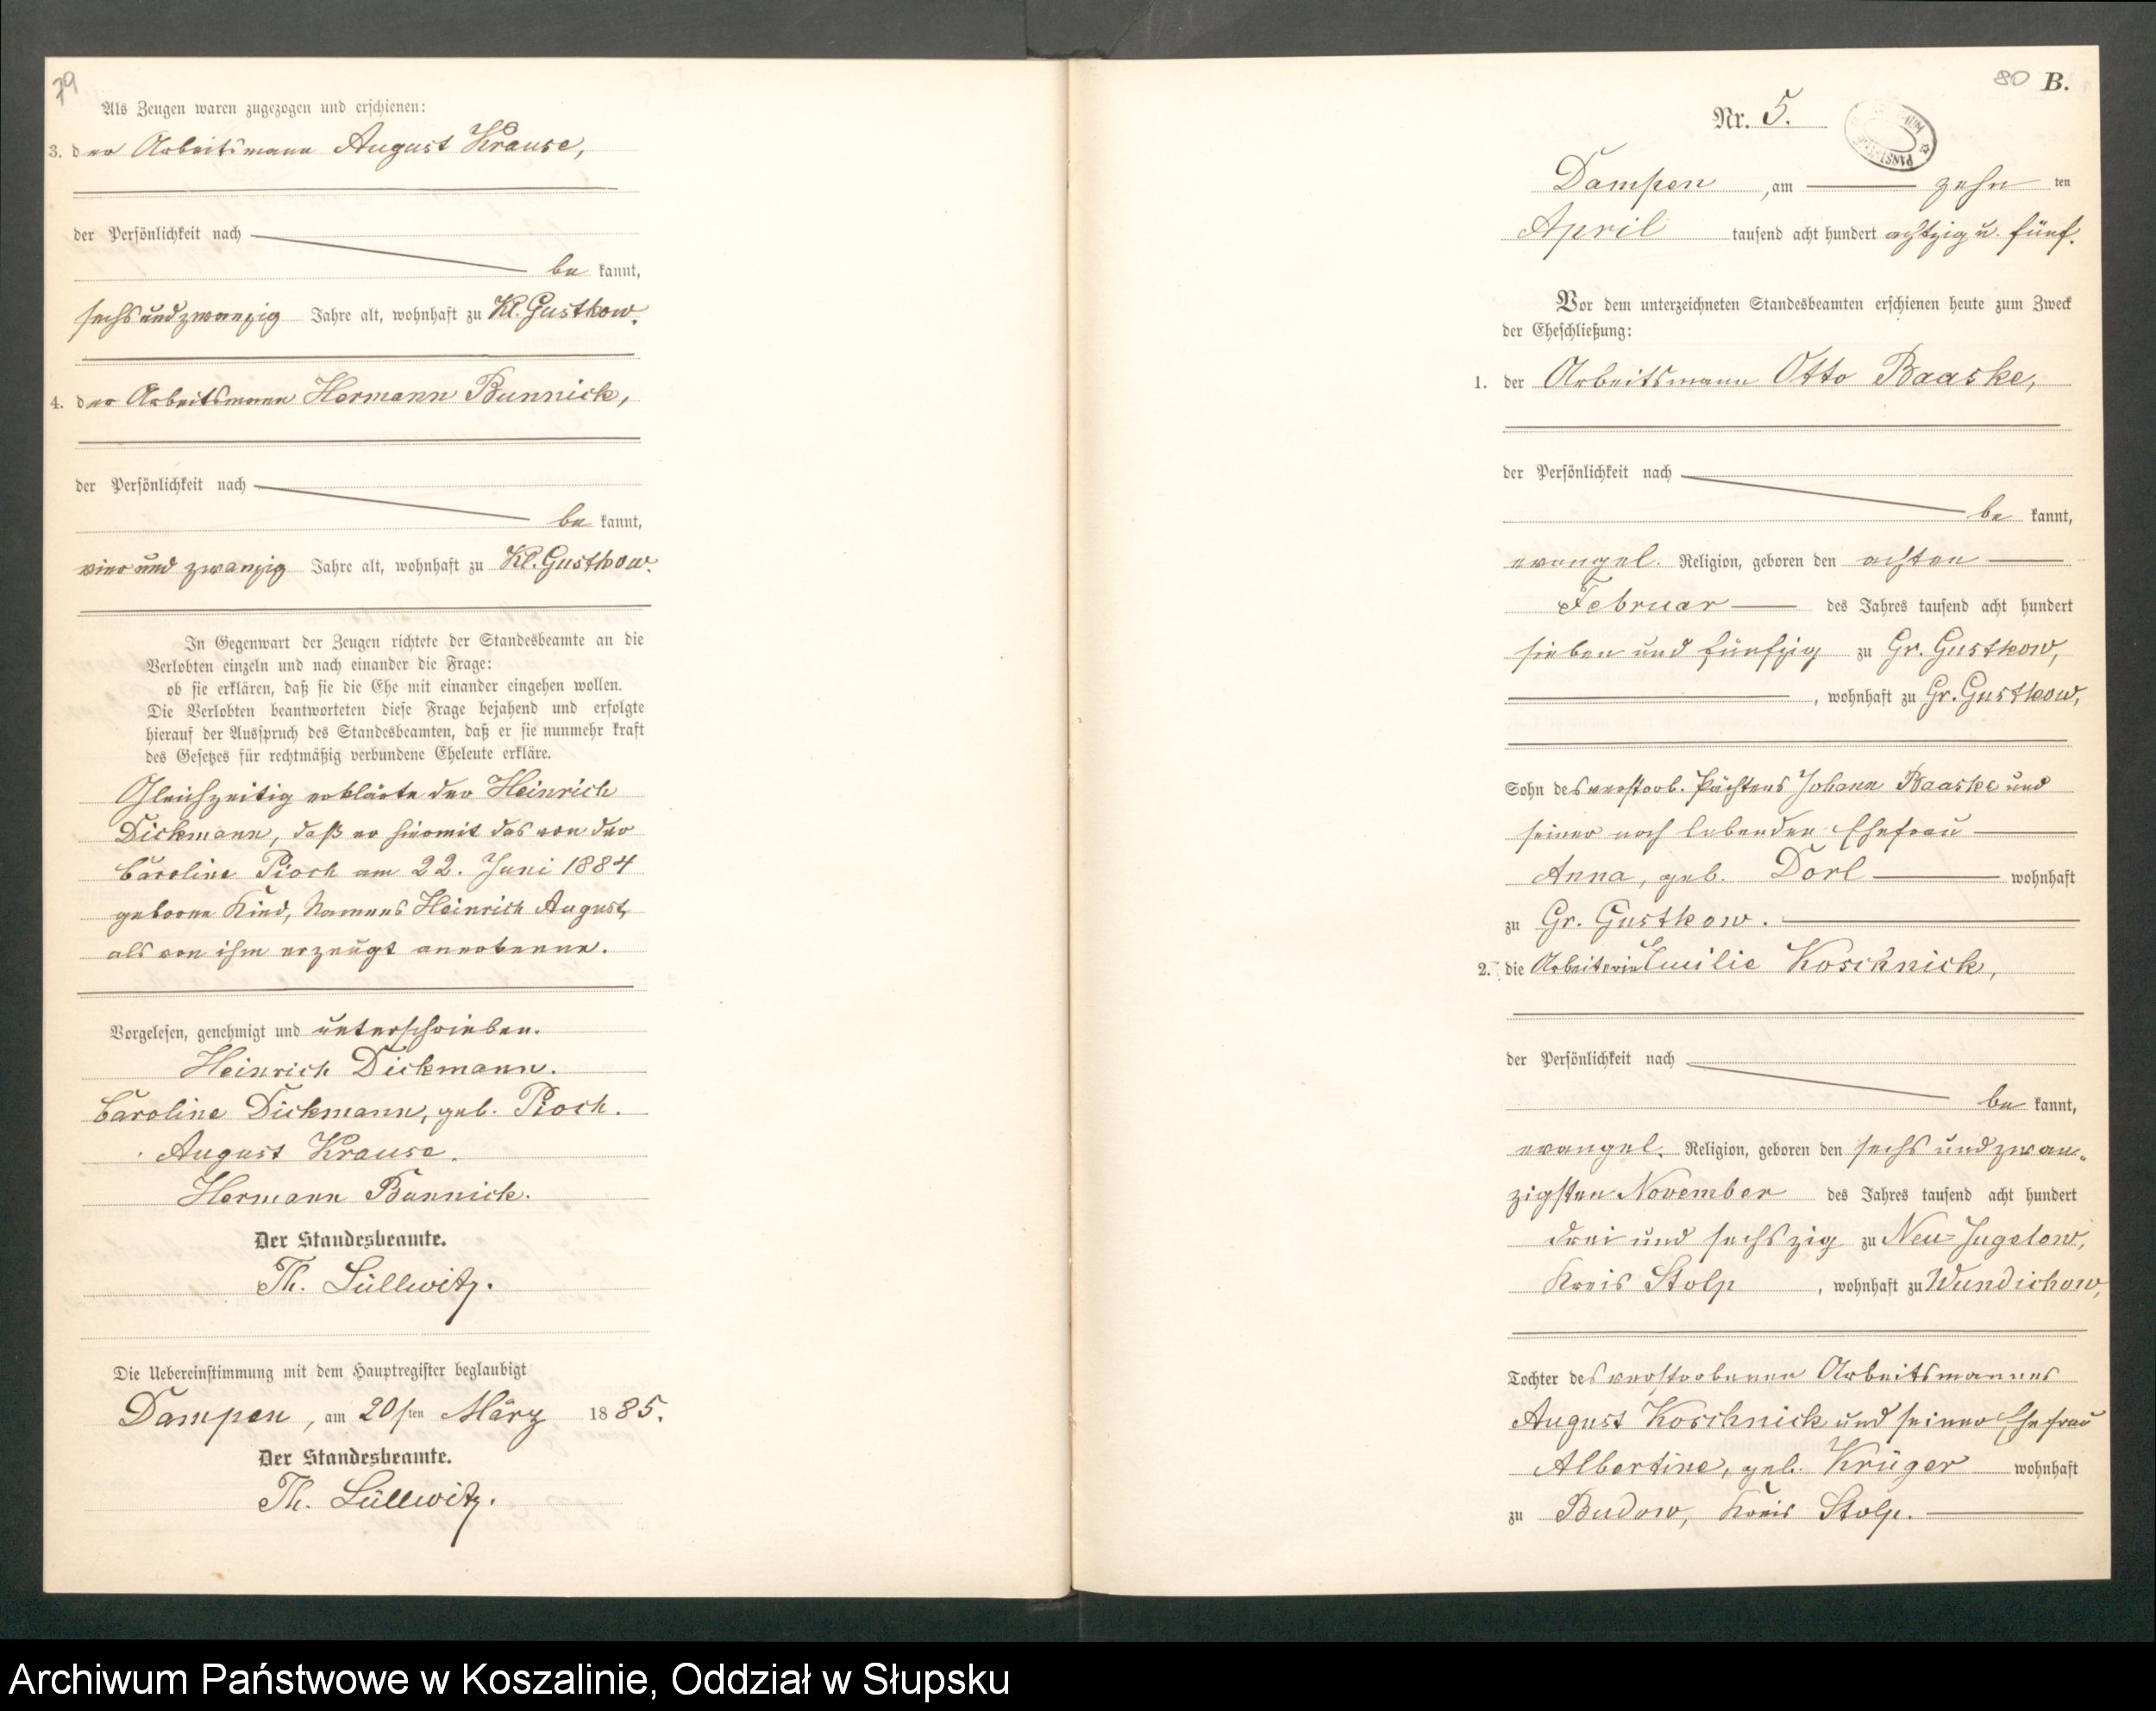 79
Als Zeugen waren zugezogen und erschienen:
3. der Arbeitsmann August Krause,
der Persönlichkeit nach
be kannt,
sechs und zwanzig Jahre alt, wohnhaft zu Kl. Gustkow.
4. der Arbeitsmann Hermann Bunnick,
der Persönlichkeit nach
be kannt,
vier und zwanzig Jahre alt, wohnhaft zu Kl. Gustkow.
In Gegenwart der Zeugen richtete der Standesbeamte an die
Verlobten einzeln und nach einander die Frage:
ob sie erklären, daß sie die Ehe mit einander eingehen wollen.
Die Verlobten beantworteten diese Frage bejahend und erfolgte
hierauf der Ausspruch des Standesbeamten, daß er sie nunmehr kraft
des Gesetzes für rechtmäßig verbundene Eheleute erkläre.
Gleichzeitig erklärte der Heinrich
Dickmann, daß er hiermit das von der
Caroline Pioch am 22. Juni 1884
geborene Kind, Namens Heinrich August,
als von ihm erzeugt anerkenne.
Vorgelesen, genehmigt und unterschrieben.
Heinrich Dickmann.
Caroline Dickmann, geb. Pioch.
August Krause.
Hermann Bunnick.
Der Standesbeamte.
Th. Lüllwitz.
Die Uebereinstimmung mit dem Hauptregister beglaubigt
Dampen, am 20sten März 1885.
Der Standesbeamte.
Th. Lüllwitz.
80 B.
Nr. 5.
Dampen, am zehn ten
April tausend acht hundert achtzig u. fünf.
Vor dem unterzeichneten Standesbeamten erschienen heute zum Zweck
der Eheschließung:
1. der Arbeitsmann Otto Baaske,
der Persönlichkeit nach
be kannt,
evangel. Religion, geboren den achten
Februar des Jahres tausend acht hundert
sieben und fünfzig zu Gr. Gustkow,
, wohnhaft zu Gr. Gustkow,
Sohn des verstorb. Pächters Johann Baaske und
seiner noch lebenden Ehefrau
Anna, geb. Dorl wohnhaft
zu Gr. Gustkow.
2. die Arbeiterin Emilie Koschnick,
der Persönlichkeit nach
be kannt,
evangel. Religion, geboren den sechs und zwan-
zigsten November des Jahres tausend acht hundert
drei und sechszig zu Neu-Jugelow,
Kreis Stolp, wohnhaft zu Wundichow,
Tochter des verstorbenen Arbeitsmannes
August Koschnick und seiner Ehefrau
Albertine, geb. Krüger wohnhaft
zu Budow, Kreis Stolp.
Archiwum Państwowe w Koszalinie, Oddział w Słupsku